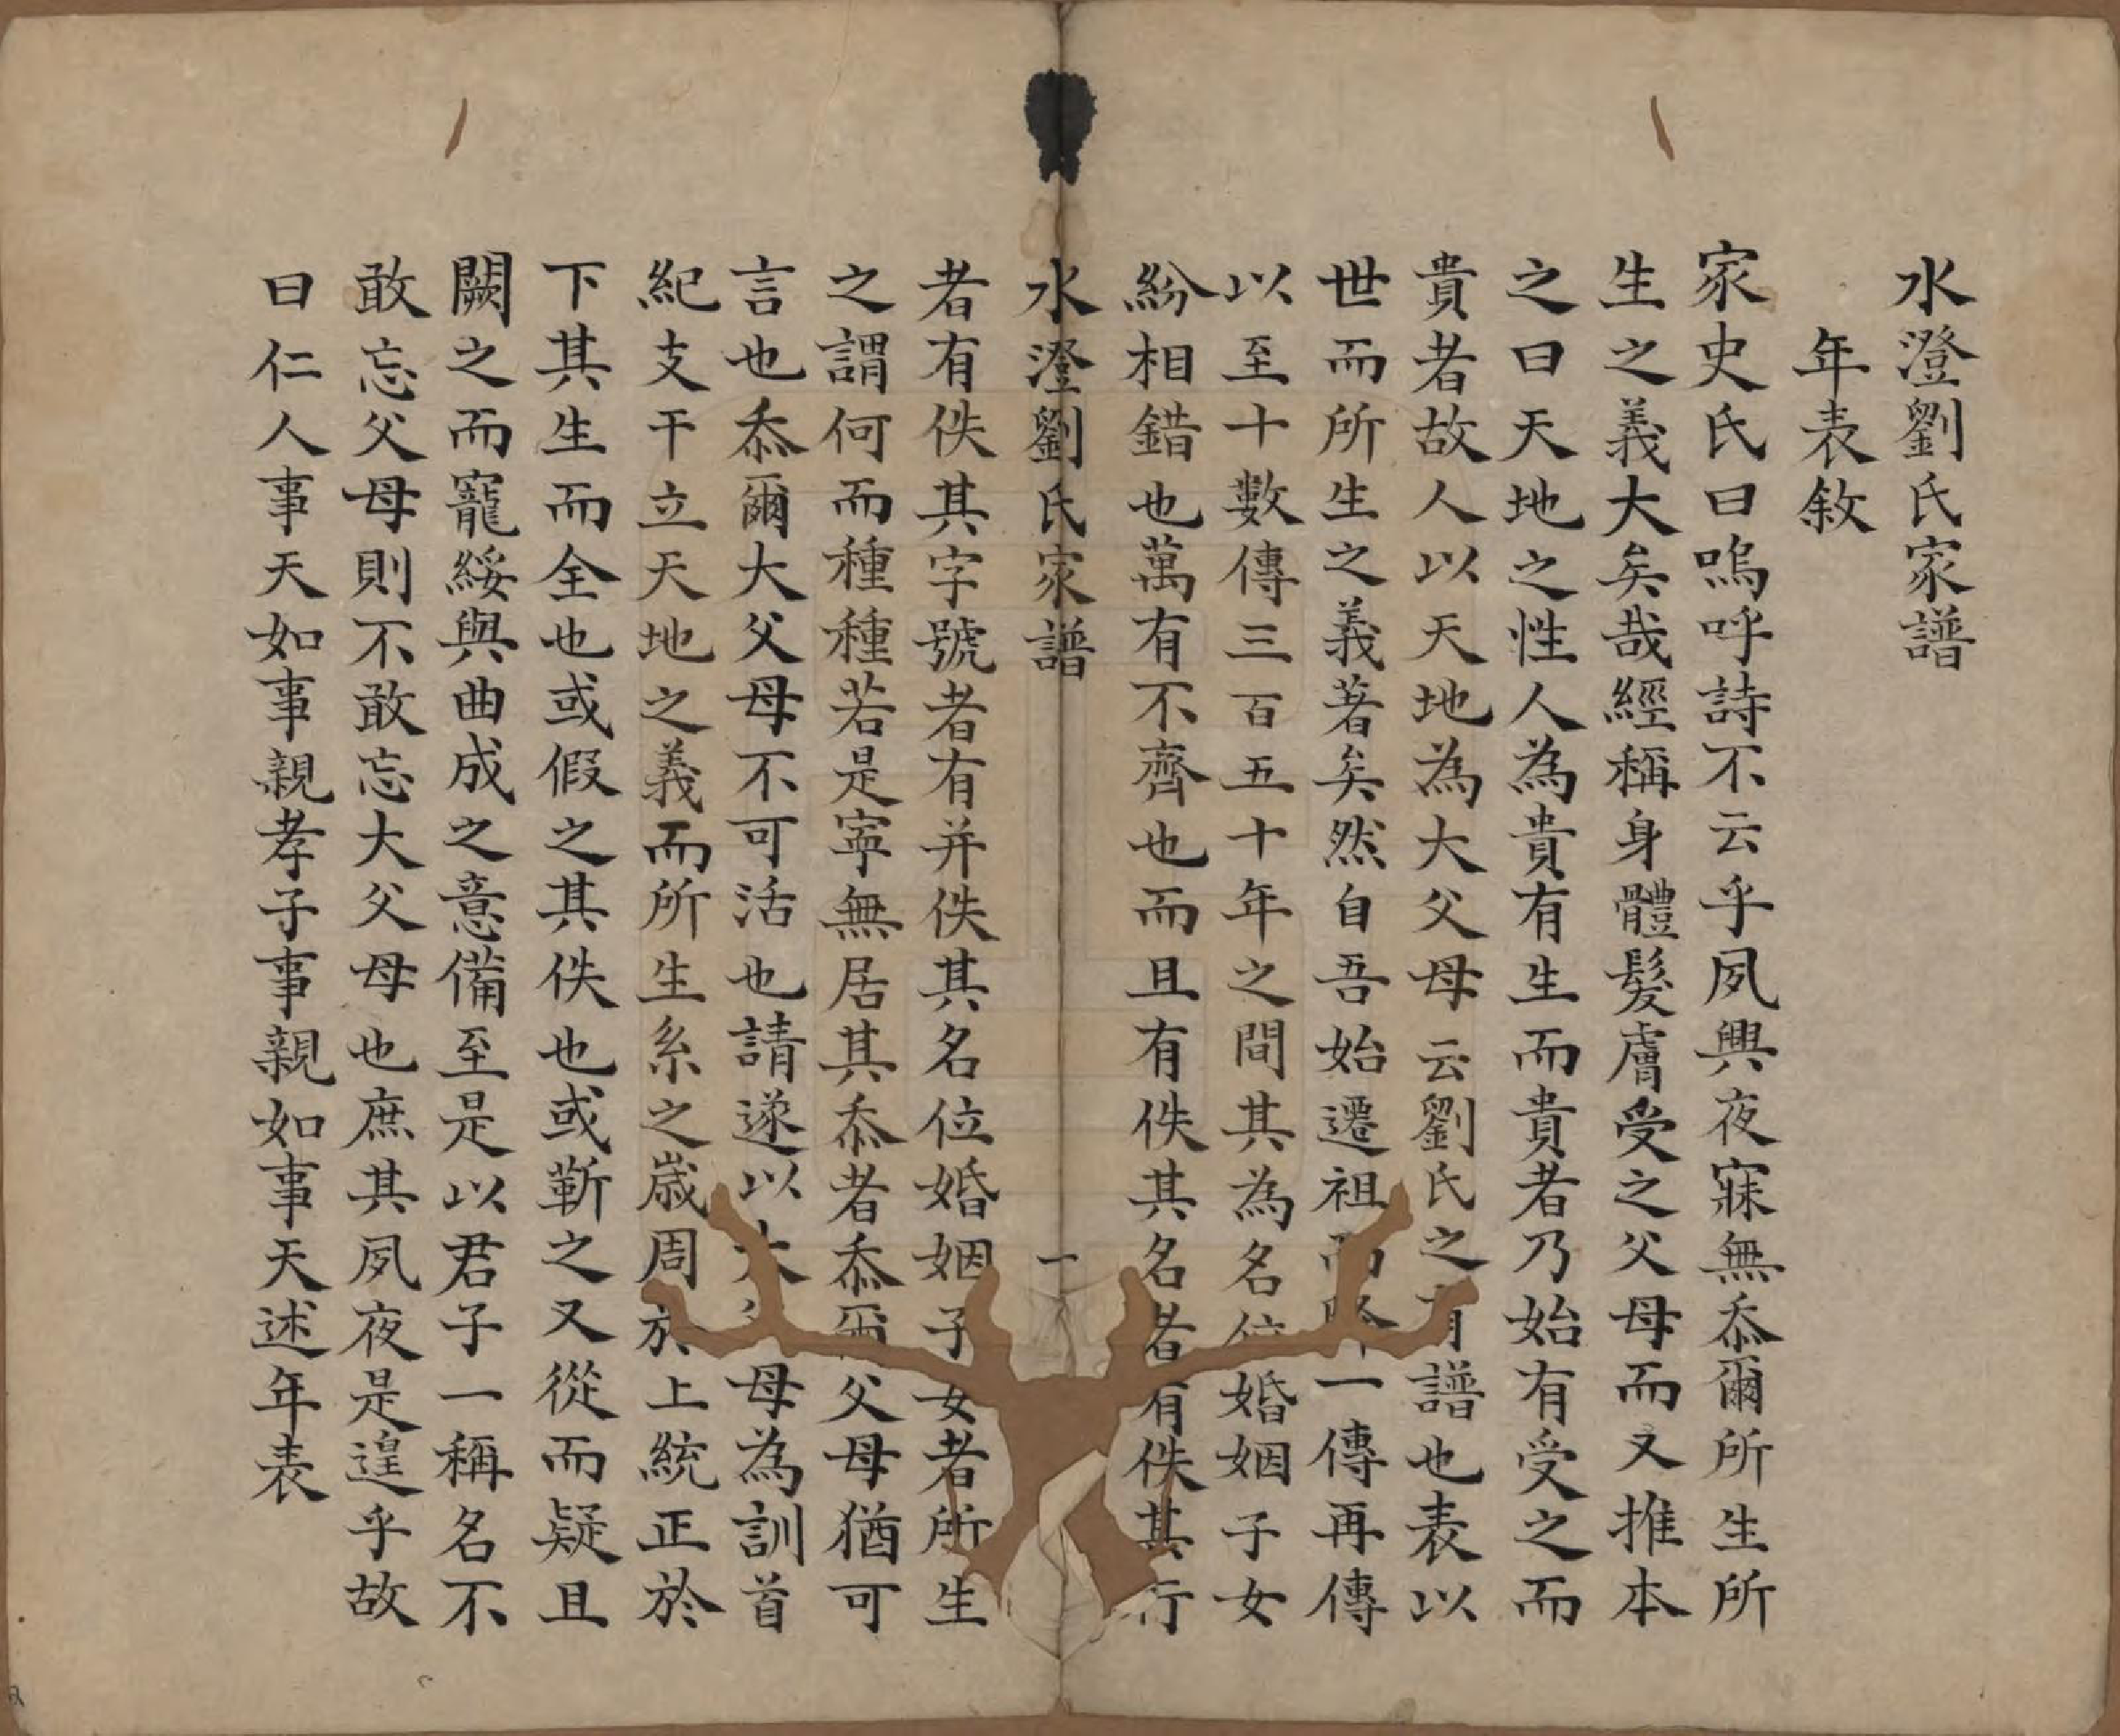 水澄劉氏家譜
年表敘
家史氏曰嗚呼詩不云乎夙興夜寐無忝爾所生所
生之義大矣哉經稱身體髮膚受之父母而又推本
之曰天地之性人為貴有生而貴者乃始有受之而
貴者故人以天地為大父母云劉氏之有譜也表以
世而所生之義著矣然自吾始遷祖而一傳再傳
以至十數傳三百五十年之間其為名位婚姻子女
紛相錯也萬有不齊也而且有佚其名者有佚其行
水澄劉氏家譜 一
者有佚其字號者有并佚其名位婚姻子女者所生
之謂何而種種若是寕無居其忝者忝爾父母猶可
言也忝爾大父母不可活也請遂以大父母為訓首
紀支干立天地之義而所生系之歲周於上統正於
下其生而全也或假之其佚也或蘄之又從而疑且
闕之而寵綏與曲成之意備至是以君子一稱名不
敢忘父母則不敢忘大父母也庶其夙夜是遑乎故
曰仁人事天如事親孝子事親如事天述年表